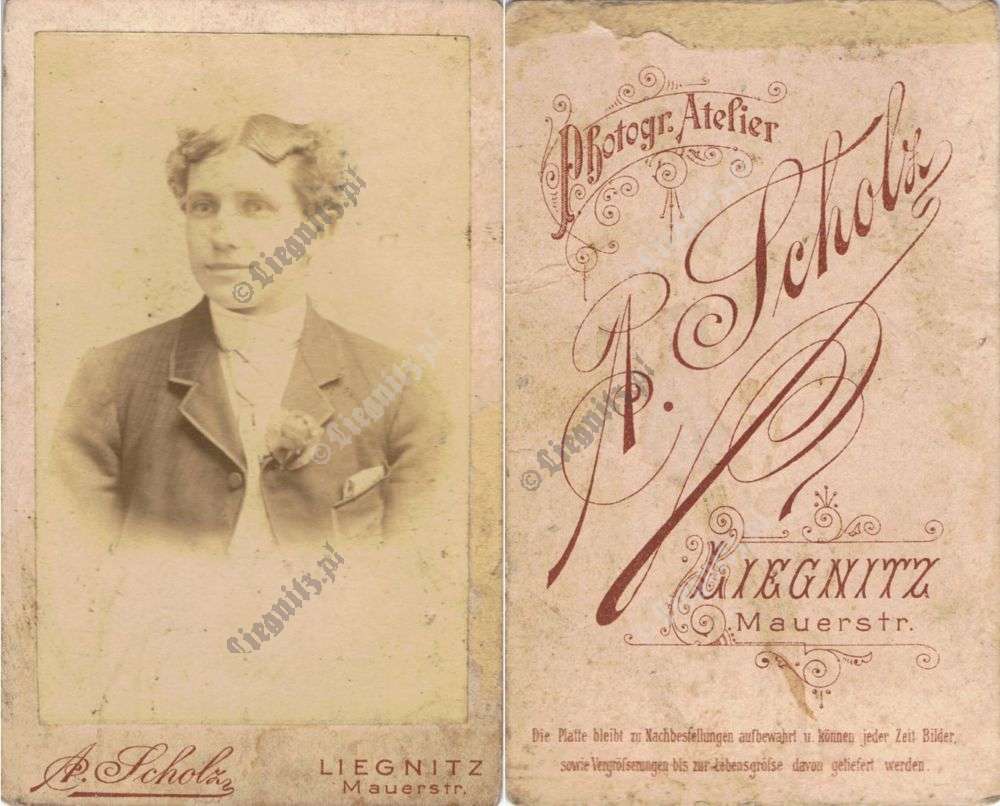 © Liegnitz.pl
© Liegnitz.pl
Liegnitz.pl
A. Scholz
LIEGNITZ
Mauerstr.
Photogr. Atelier
A. Scholz
© Liegnitz.pl
LIEGNITZ
Mauerstr.
Die Platte bleibt zu Nachbestellungen aufbewahrt u. können jeder Zeit Bilder,
sowie Vergrösserungen bis zur Lebensgröfse davon geliefert werden.